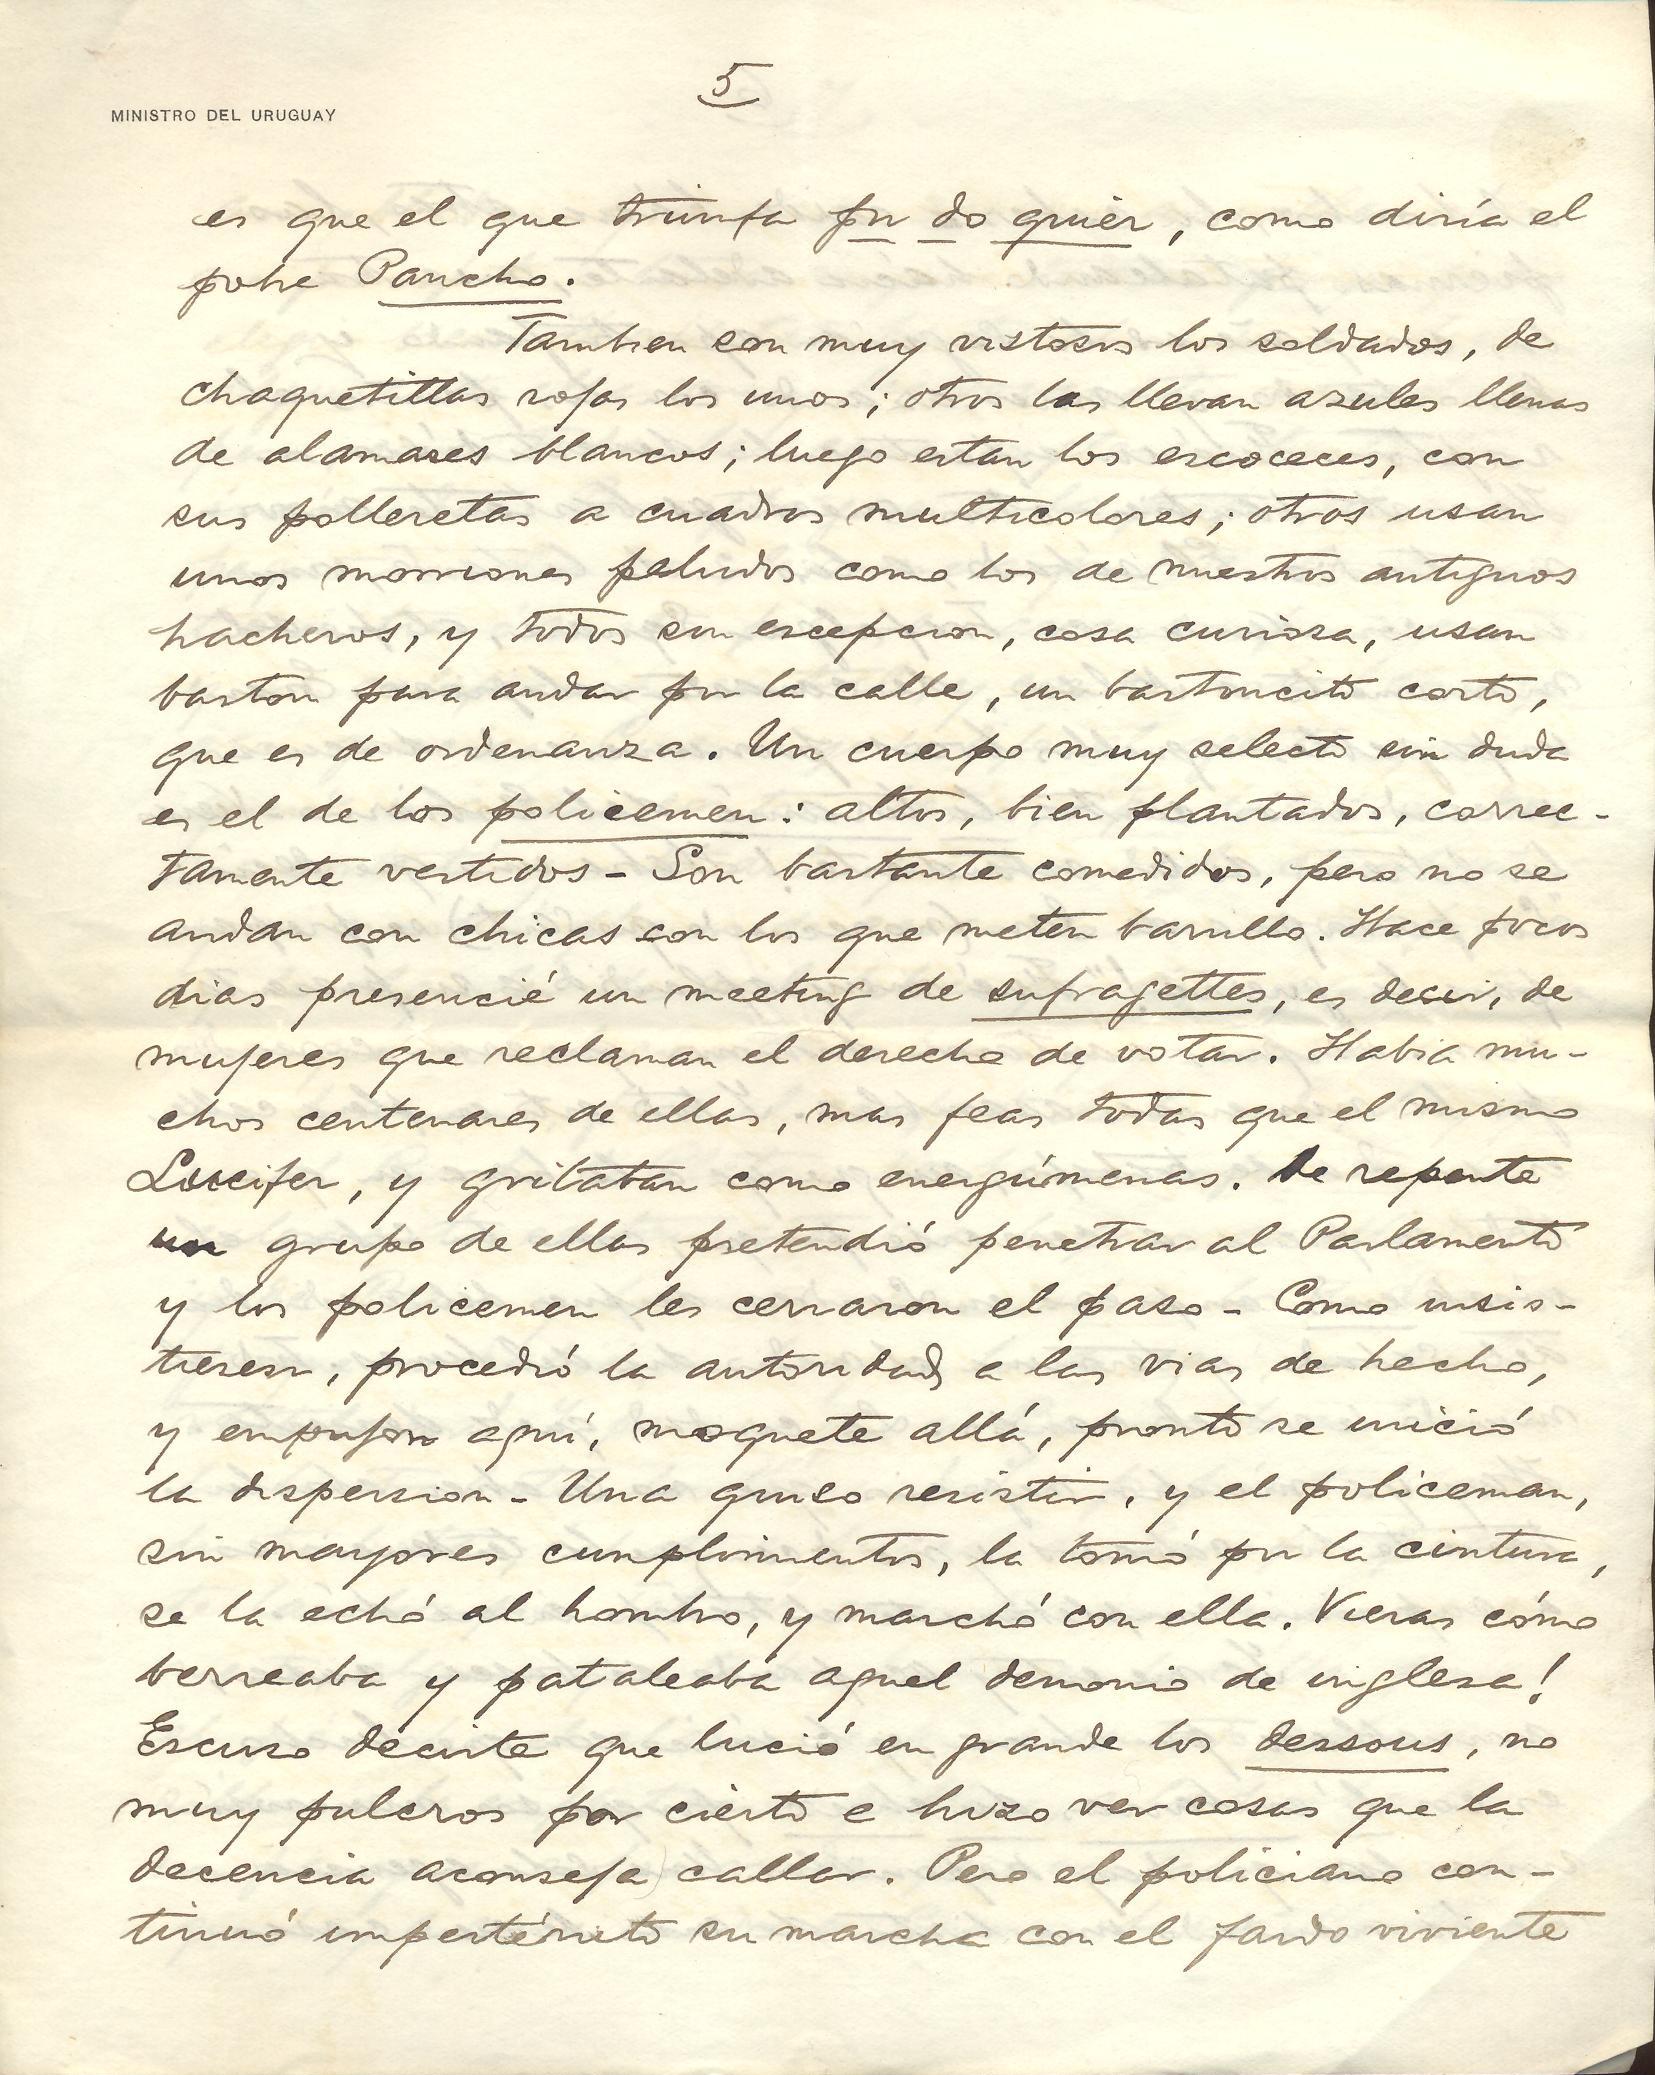 5
MINISTRO DEL URUGUAY
es que el que triunfa por do quier, como diría el
pobre Pancho.
Tambien son muy vistosos los soldados, de
chaquetillas rojas los unos; otros las llevan azules llenas
de alamares blancos; luego estan los escoceces, con
sus polleretas a cuadros multicolores; otros usan
unos morriones peludos como los de nuestros antiguos
hacheros, y todos sin escepcion, cosa curiosa, usan
baston para andar por la calle, un bastoncito corto,
que es de ordenanza. Un cuerpo muy selecto sin duda
es el de los policemen: altos, bien plantados, correc-
tamente vestidos - Son bastante comedidos, pero no se
andan con chicas con los que meten barullo. Hace pocos
dias presencié un meeting de sufragettes, es decir, de
mujeres que reclaman el derecho de votar. Habia mu-
chos centenares de ellas, mas feas todas que el mismo
Lucifer, y gritaban como energúmenas. De repente
un grupo de ellas pretendió penetrar al Parlamento
y los policemen les cerraron el paso - Como insis-
tiesen, procedió la autoridad a las vias de hecho,
y empujon aquí, moquete allá, pronto se inició
la dispersion - Una quiso resistir, y el policeman,
sin mayores cumplimientos, la tomó por la cintura,
se la echó al hombro, y marchó con ella. Vieras cómo
berreaba y pataleaba aquel demonio de inglesa!
Escuso decirte que lució en grande los dessous, no
muy pulcros por cierto e hizo ver cosas que la
decencia aconseja callar. Pero el policiano con-
tinuó impertérrito su marcha con el fardo viviente